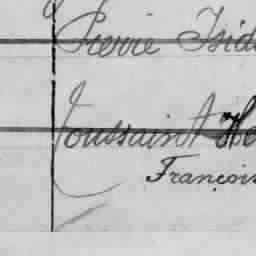 Pierre Isid
Toussaint He
François